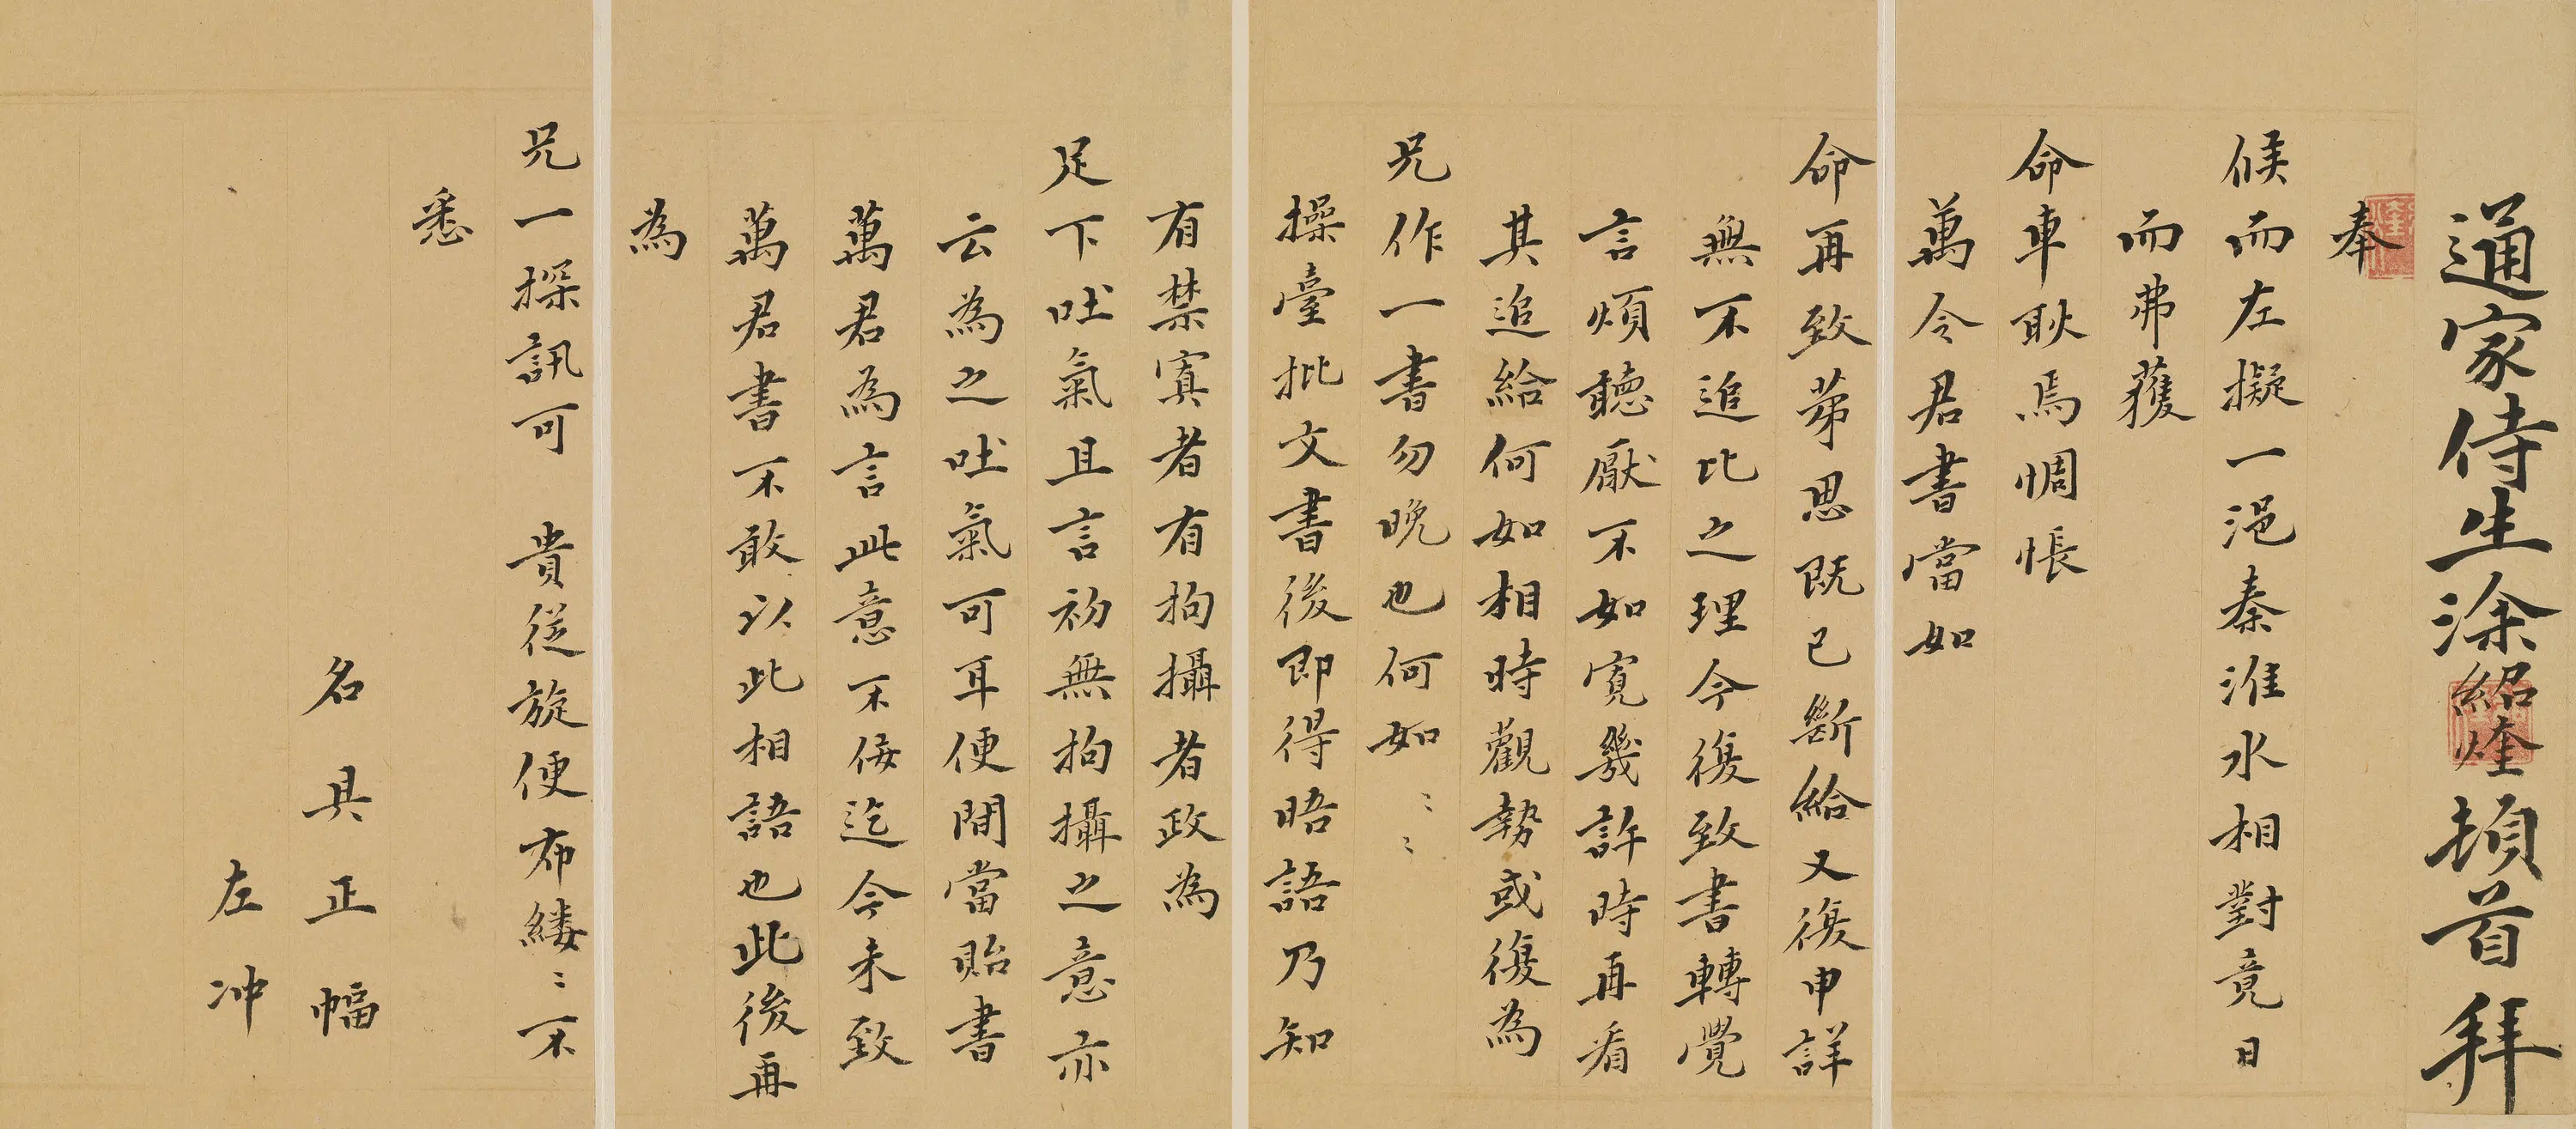 通家侍生涂紹煃頓首拜
奉
候而左擬一浥秦淮水相對竟日
而弗獲
命車耿焉惆悵
萬令君書當如
命再致苐思既已斷給又復申詳
無不追比之理今復致書轉覺
言煩聽厭不如寬幾許時再看
其追給何如相時觀勢或復為
兄作一書勿晚也何如〻〻
操臺批文書後即得晤語乃知
有禁寘者有拘攝者政為
足下吐氣且言初無拘攝之意亦
云為之吐氣可耳便間當貽書
萬君為言此意不侫迄今未致
萬君書不敢以此相語也此後再
為
兄一探訊可 貴從旋便布縷〻不
悉
名具正幅
左冲